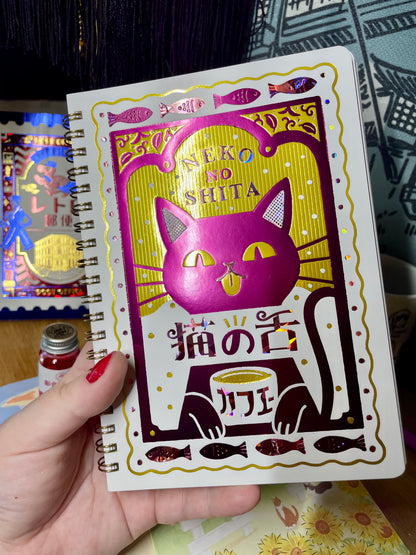 NEKO
NO
SHITA
猫の舌
カフェー
レト
郵便